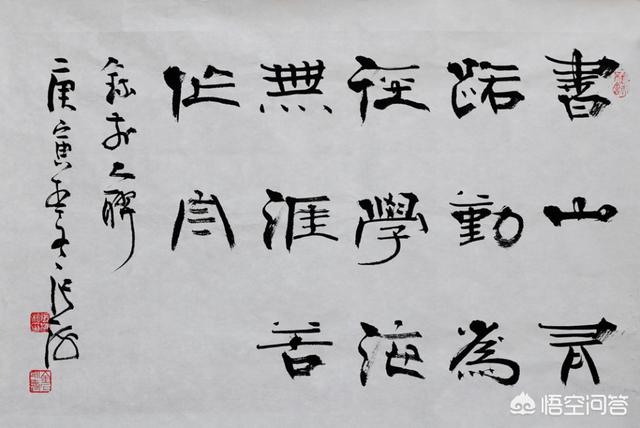 書山有
路勤為
徑學海
無涯苦
作舟
聯
庚寅
悟空问答